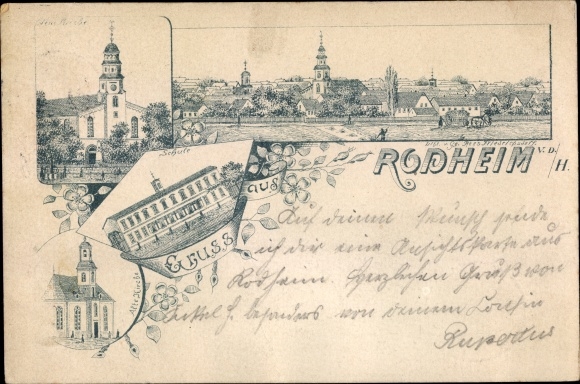 Neue Kirche
Schule
RODHEIM v. D. / H.
Gruss aus
Alte Kirche
Auf deinen Wunsch sende
ich dir eine Ansichtskarte aus
Rodheim. Herzlichen Gruß von
besonders von deinem